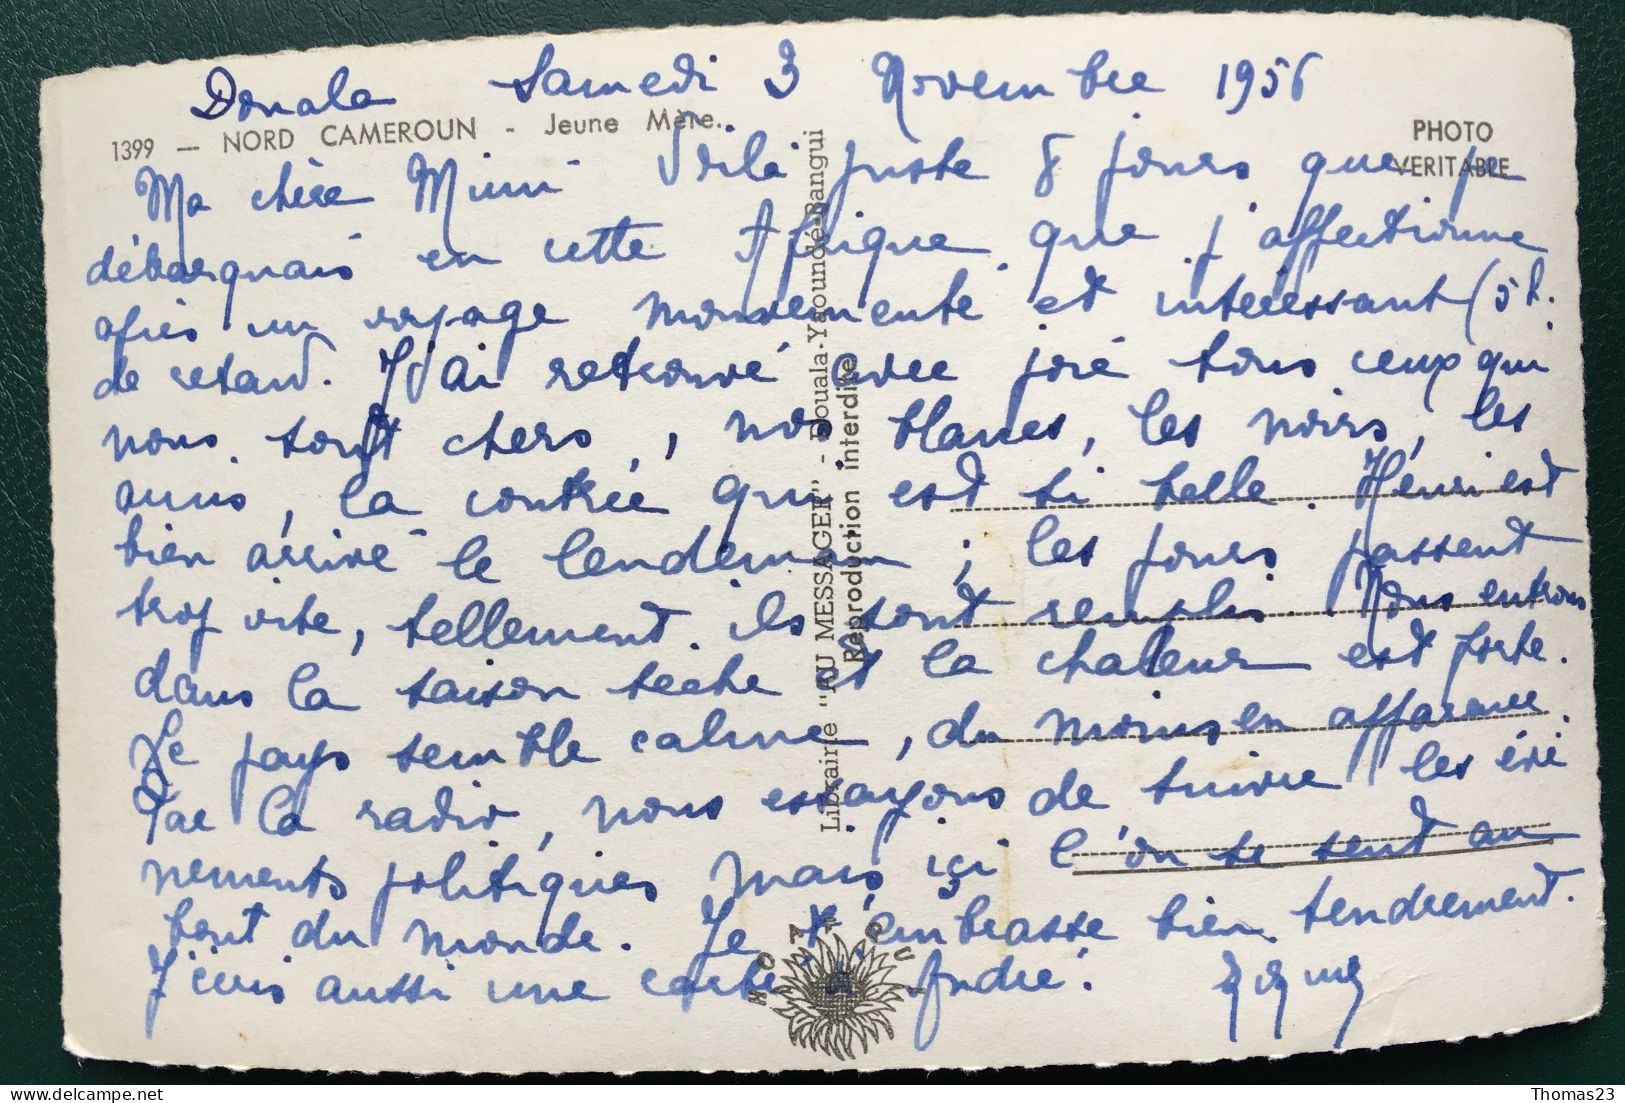 Douala Samedi 3 Novembre 1956
1399 — NORD CAMEROUN - Jeune Mère.
PHOTO
VERITABLE
Ma chère Mimi Voilà juste 8 jours que je
débarquais en cette Afrique que j'affectionne
après un voyage mouvementé et intéressant (5 h.
de retard. J'ai retrouvé avec joie tous ceux qui
nous sont chers, nos blancs, les noirs, les
amis, la contrée qui est si belle. Henri est
bien arrivé le lendemain ; les jours passent
trop vite, tellement ils sont remplis. Nous entrons
dans la saison seche et la chaleur est forte.
Le pays semble calme, du moins en apparence.
Par la radio, nous essayons de suivre les évé
nements politiques mais ici l'on se sent au
bout du monde. Je t'embrasse bien tendrement.
J'écris aussi une carte à André.
Librairie "AU MESSAGER" - Douala-Yaoundé-Bangui
Reproduction interdite
HOA-QUI
Thomas23